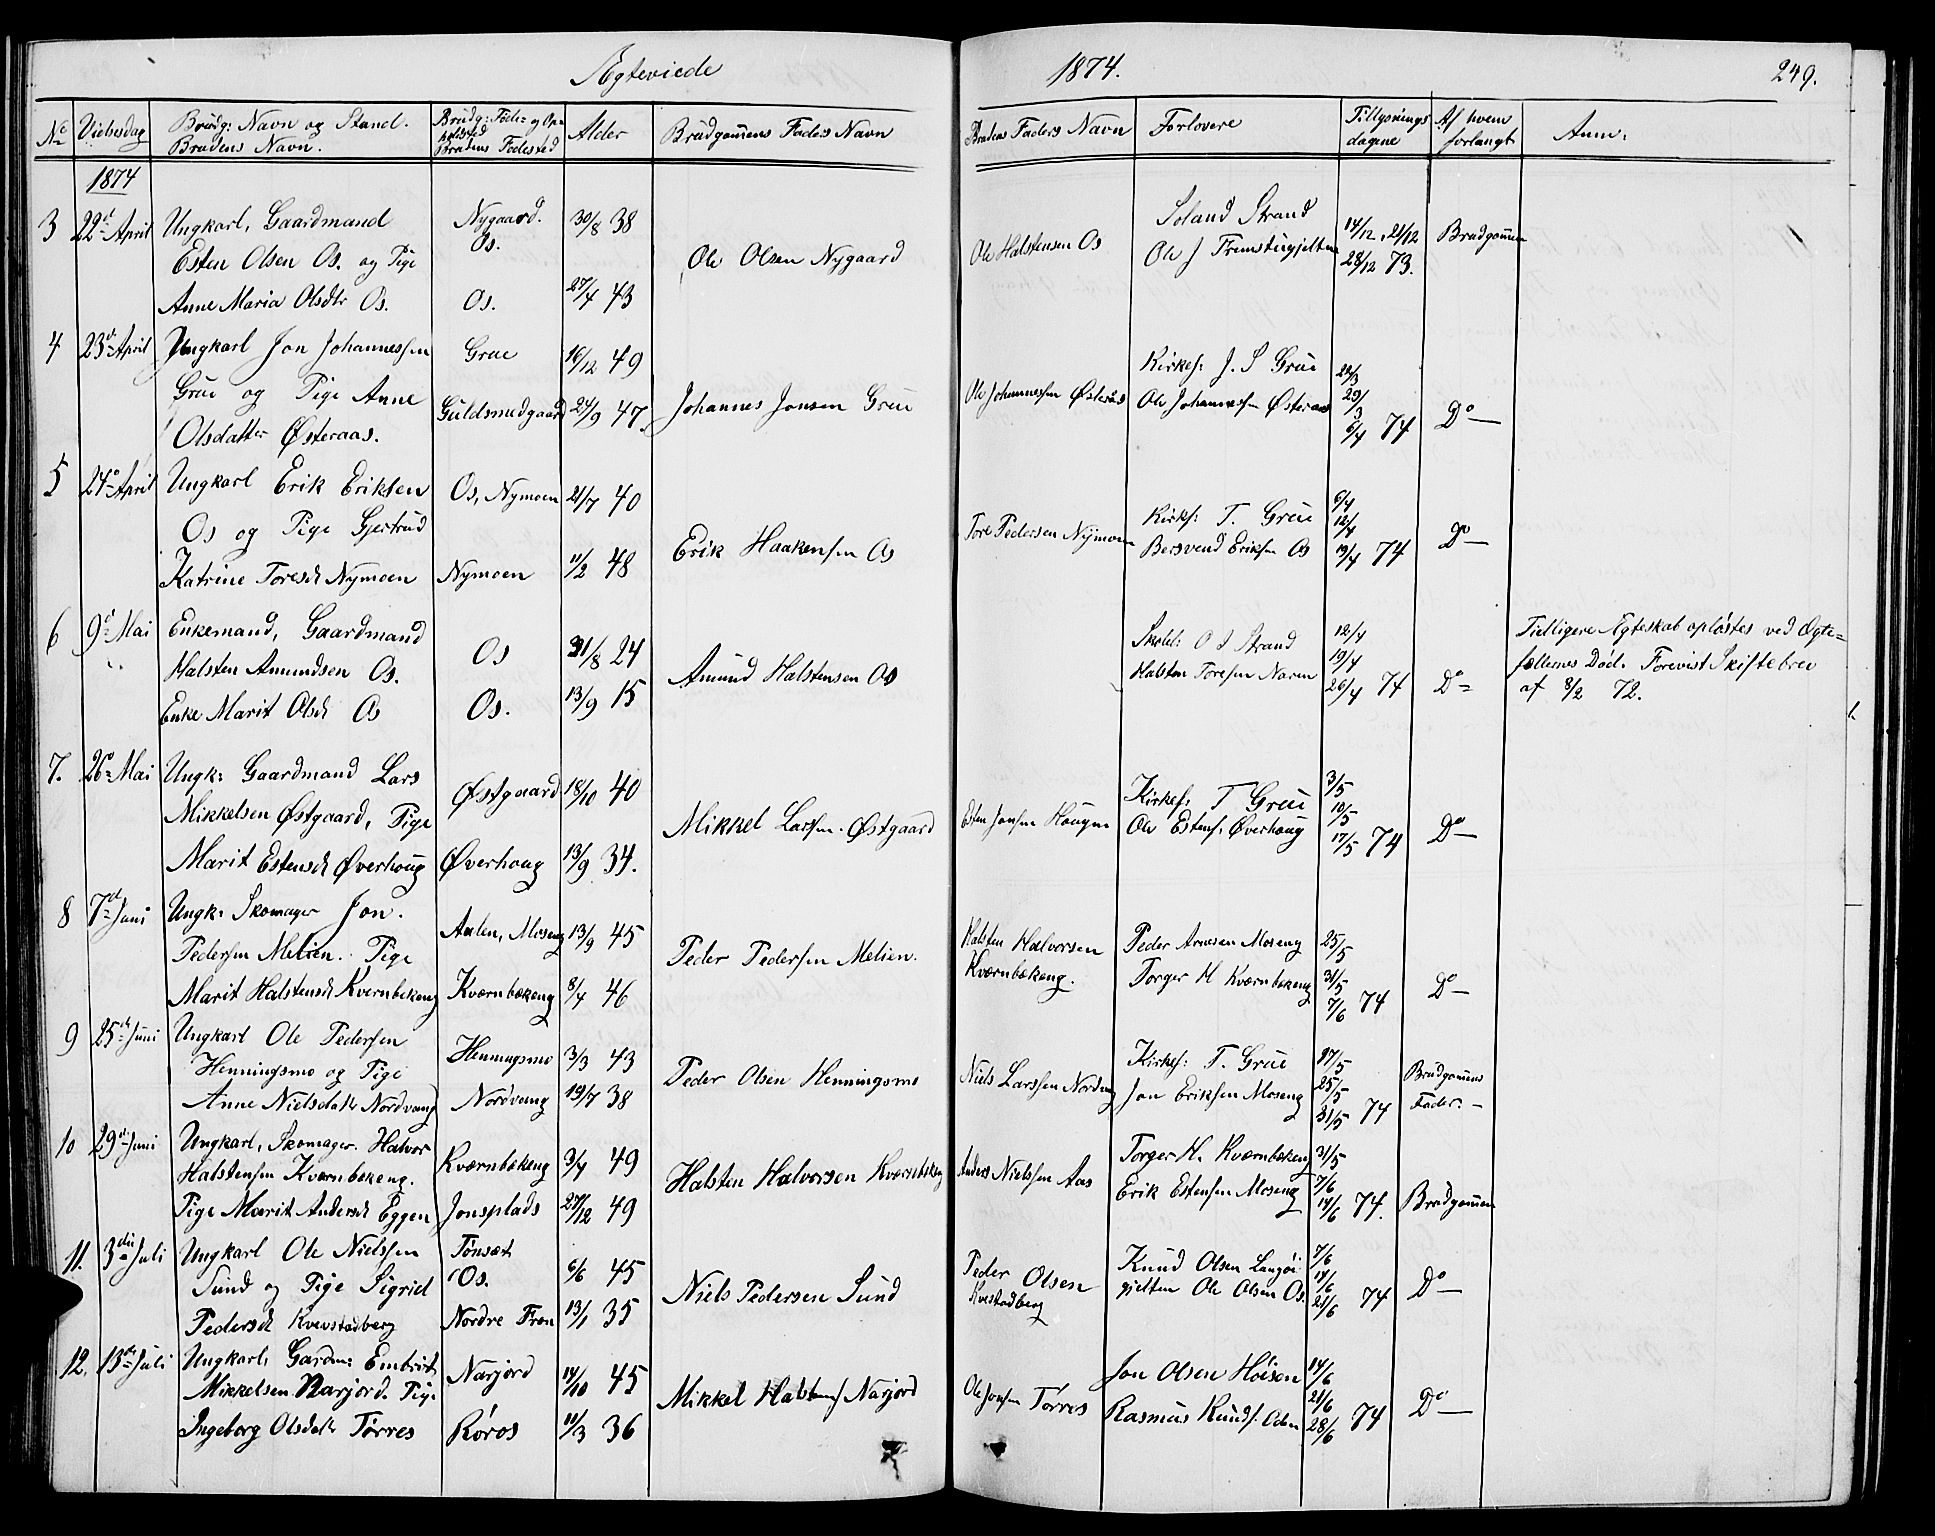 Ægteviede
1874.
249.
No Vielsesdag Brudg: Navn og Stand. Brudens Navn. Brudg: Føde- og Opholdsted Brudens Fødested Alder Brudgommens Faders Navn Brudens Faders Navn Forlovere Tillysningsdagene Af hvem forlangt Anm:
1874
3 22d April Ungkarl, Gaardmand Nygaard. 30/8 38 Soland Strand 14/12, 21/12 Brudgommen
Esten Olsen Os. og Pige Os. Ole Olsen Nygaard Ole Halstensen Os Ole J 28/12 73.
Anne Maria Olsdtr Os. Os. 27/4 43
4 23d April Ungkarl Jon Johannessen Grue 16/12 49 Kirkes: J. S Grue 22/3
Grue og Pige Anne Guldsmedgaard 24/9 47. Johannes Jonsen Grue Ole Johannessen Østeraas Ole Johannessen Østeraas 29/3
Olsdatter Østeraas. 6/4 74 Do —
5 24d April Ungkarl Erik Eriksen Os, Nymoen 21/7 40 6/4
Os og Pige Gjertrud Erik Haakensen Os Tore Pedersen Nymoen Kirks: T. Grue 12/4
Katrine Toresd Nymoen Nymoen 11/2 48 Bersvend Eriksen Os 19/4 74 Do —
6 9d Mai Enkemand, Gaardmand Os 31/8 24 Skolel: O S Strand 12/4 Tidligere Ægteskab opløstes ved Ægte=
" Halsten Amundsen Os. Amund Halstensen Os Halsten Toresen Naren 19/4 fællernes Død. Forevist Skiftebrev
Enke Marit Olsd Os Os. 13/9 15 26/4 74 Do = af 8/2 72.
7. 26d Mai Ungk: Gaardmand Lars Østgaard 18/10 40 3/5
Mikkelsen Østgaard, Pige Mikkel Larsen Østgaard Esten Jonsen Hougen Kirkes: T Grue 10/5
Marit Estensd Øverhoug Øverhoug 13/9 34. Ole Estens. Øverhoug 17/5 74 Do —
8 7d Juni Ungk: Skomager Jon. Aalen, Moseng 13/9 45 Halsten Halvorsen Peder Arnesen Moseng 25/5
Pedersen Melien. Pige Peder Pedersen Melien. Kværnbekeng. Torger H Kværnbekeng 31/5
Marit Halstensd Kvernbekeng Kværnbekeng 8/4 46 7/6 74 Do —
9 25d Juni Ungkarl Ole Pedersen Henningsmo 3/3 43 Kirkes: T. Grue 17/5 Brudgommens
Henningsmo og Pige Peder Olsen Henningsmo Niels Larssen Nordvang Jon Eriksen Moseng 25/5 Fader. —
Anne Nielsdatr Nordvang Nordvang 19/7 38 31/5 74
10 29d Juni Ungkarl, Skomager. Halvor Kværnbekeng 3/4 49 Torger H. Kværnbekeng 31/5
Halstensen Kværnbekeng. Halsten Halvorsen Kværnbekeng Anders Nielssen Aas Erik Estensen Moseng 7/6
Pige Marit Andersd Eggen Jonsplads 27/12 49 14/6 74. Brudgommen
11. 3die Juli Ungkarl Ole Nielssen Tønset 6/6 45 Peder Olsen Knud Olsen Langøi 7/6
Sund og Pige Sigrid Os. Niels Pedersen Sund Kvestadberg gjelten Ole Olsen Os. 14/6
Pedersd Kvevstadberg Nordre Fron 13/1 35 21/6 74 Do —
12. 13de Juli Ungkarl, Gardm: Embrit Narjord 14/10 45 Jon Olsen Høisen 14/6
Mikkelsen Narjord. Pige Mikkel Halstens. Narjord Ole Jonsen Tørres Rasmus Knuds. Oden 21/6
Ingeborg Olsdatr Tørres Røros 11/3 36 28/6 74 Do —